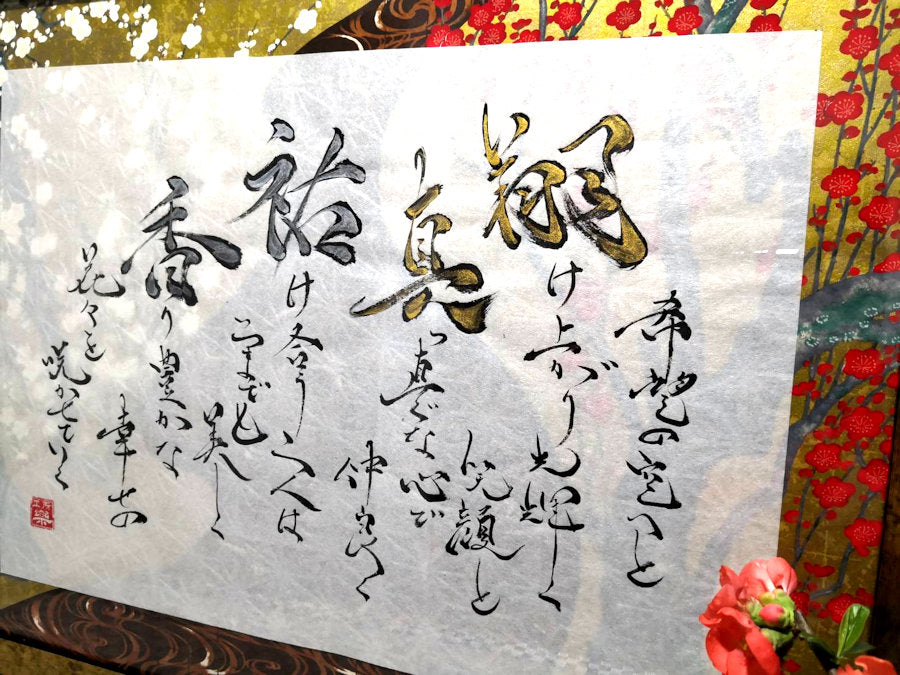 希望の空へと
翔け上がり光輝く
笑顔と
真っ直ぐな心で
仲良く
祐け合う二人は
いつまでも
美しく
香り豊かな
幸せの
花々を
咲かせていく